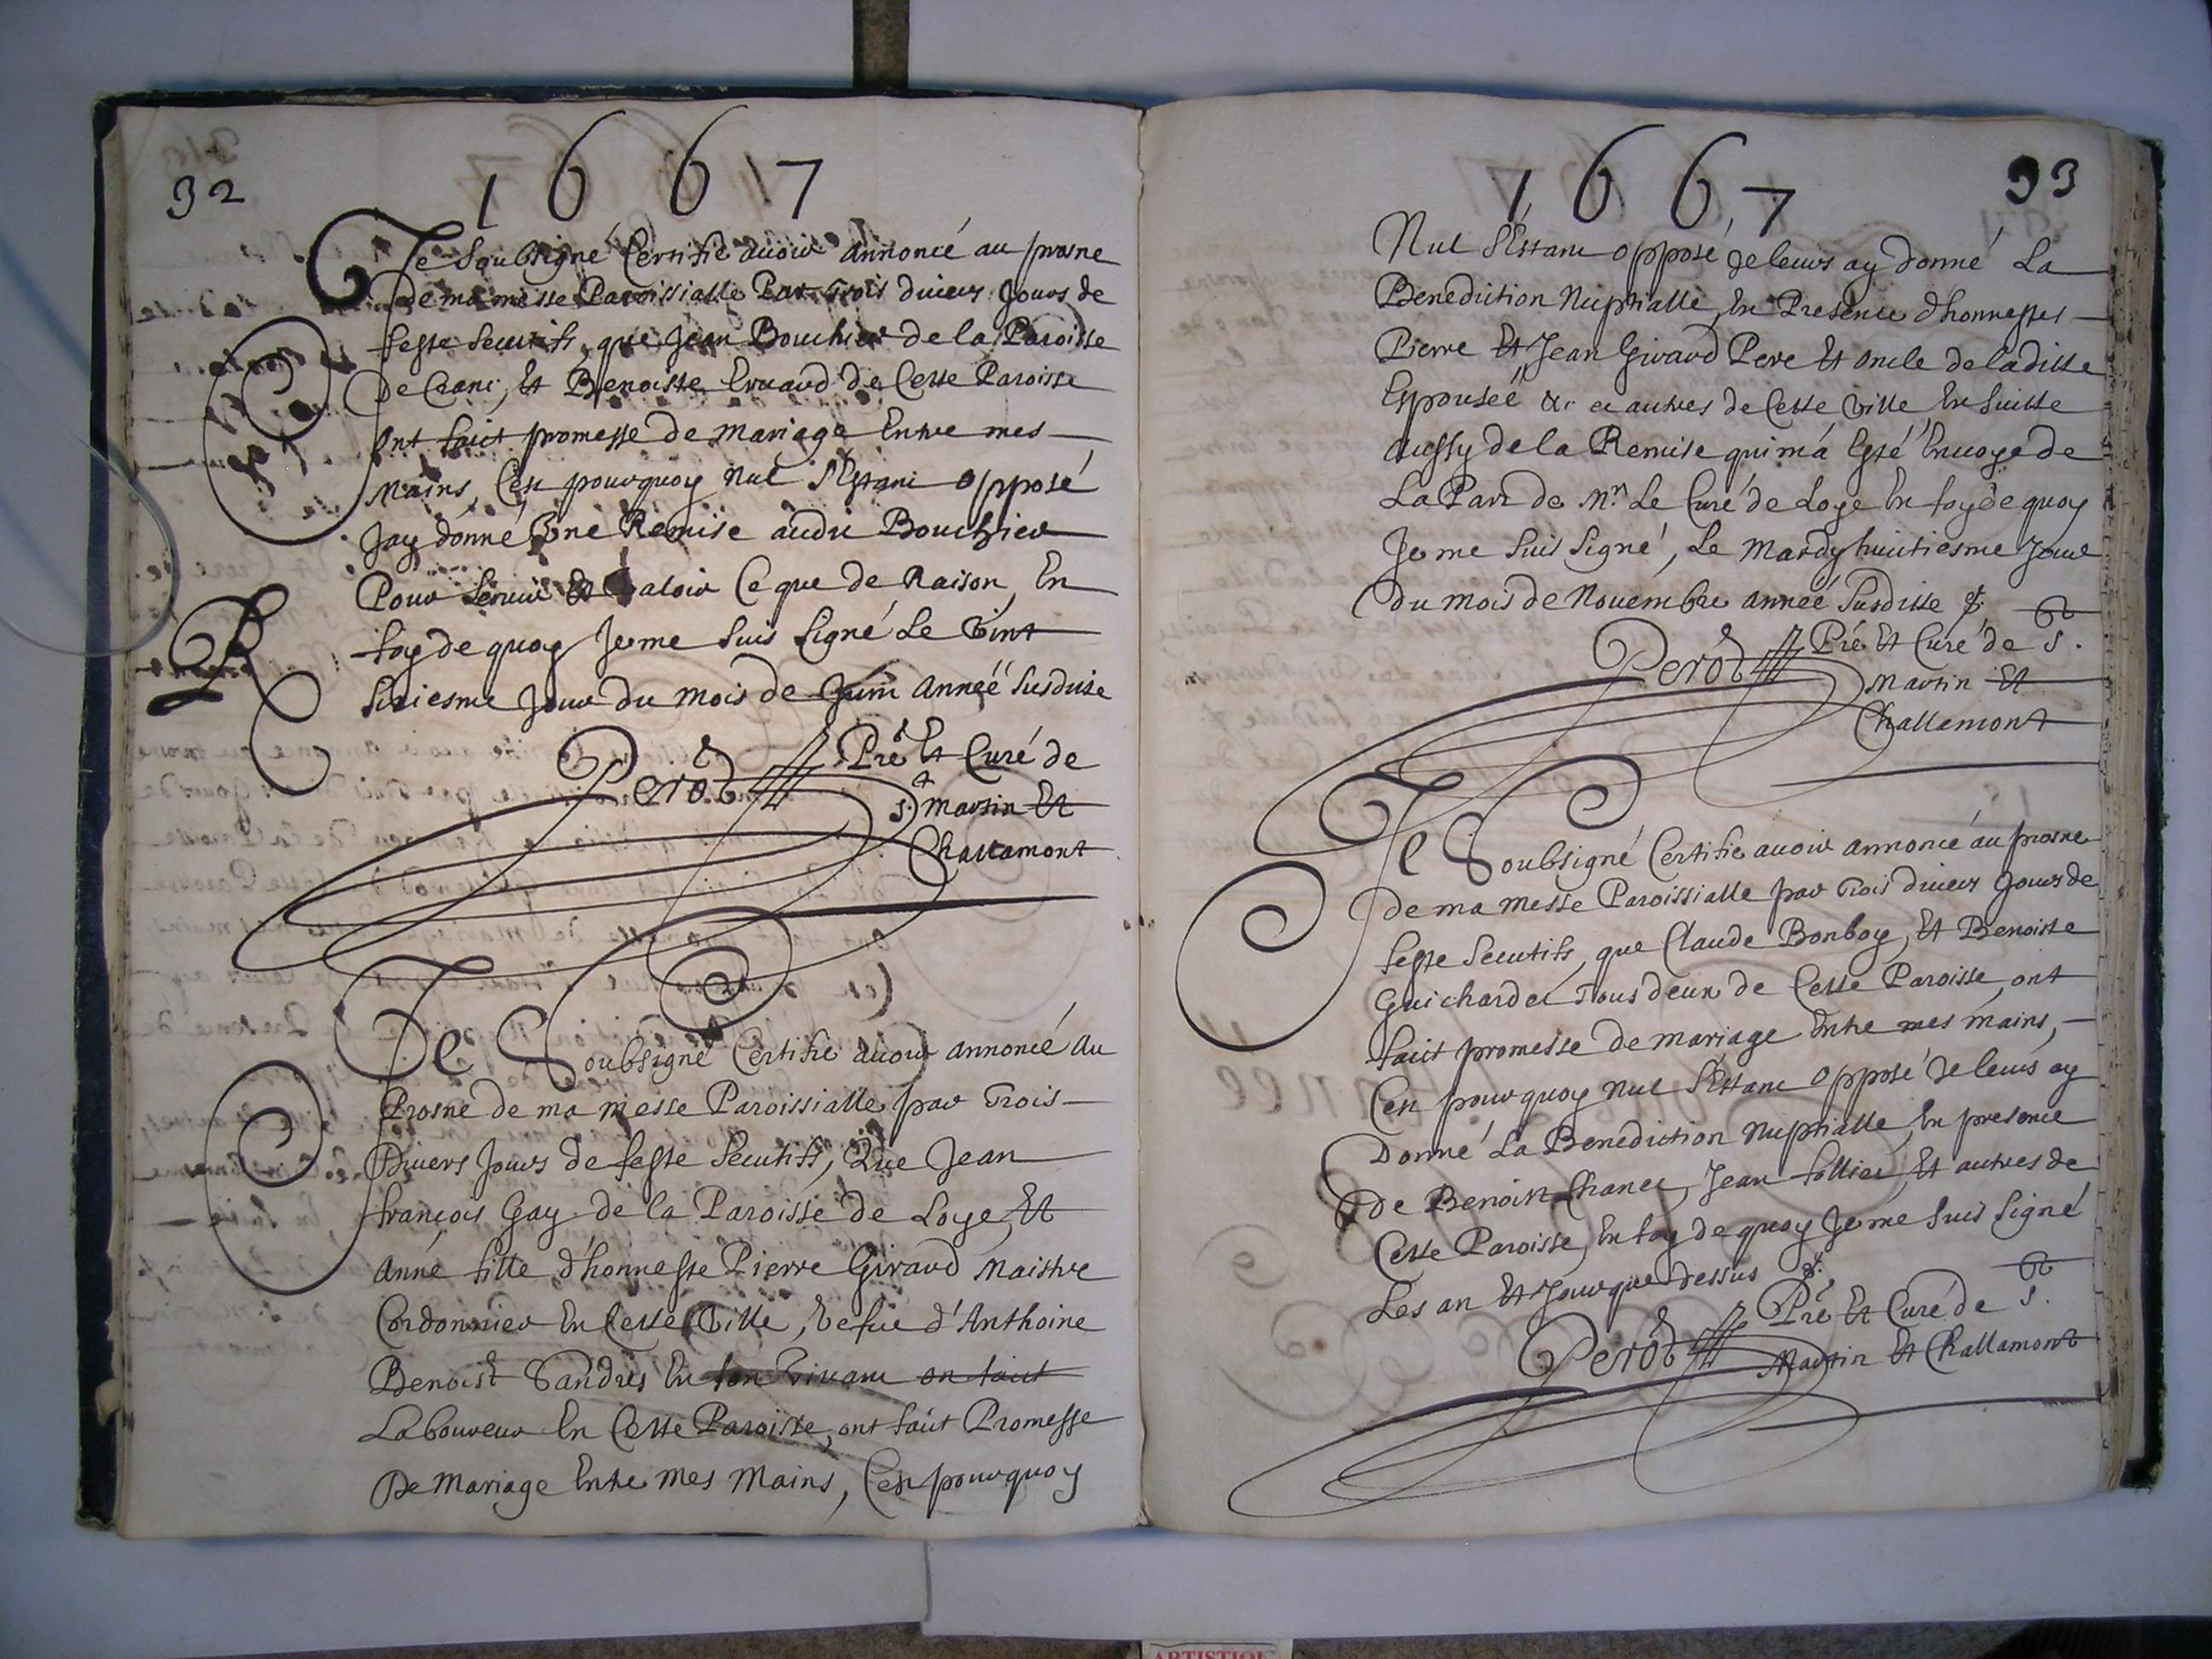 32
1667
Je Soubsigné Certifie avoir annoncé au prosne
De ma messe Paroissialle Par trois divers Jours de
feste secutifs, que Jean Bouchier de la Paroisse
De Crans, Et Benoiste Evrard de Cette Paroisse
Ont faict promesse de mariage Entre mes
Mains, C'est pourquoy Nul s'Estant Opposé
J'ay donné Une Remise audit Bouchier
Pour servir Et Valoir Ce que de Raison, En
foy de quoy Je me suis signé Le Vint
siziesme Jour du mois de Juin Année susdite
Peròd Prê Et Curé de
St Martin Et
Challamont
Je Soubsigné Certifie avoir annoncé Au
Prosne de ma messe Paroissialle par Trois
Divers Jours de feste secutifs, Que Jean
françois Gay de la Paroisse de Loye, Et
Anne fille d'honneste Pierre Giraud Maistre
Cordonnier En Cette Ville, vefue d'Anthoine
Benoist En son Vivant on faict
Laboureur En Cette Paroisse, ont faict Promesse
De Mariage Entre Mes Mains, C'est pourquoy
33
1667
Nul s'Estant opposé Je leurs ay donné La
Benediction Nuptialle, En Presence d'honnestes
Pierre Et Jean Giraud Pere Et Oncle de laditte
Espouseé &c et autres de Cette Ville En suitte
aussy de la Remise qui m'a Esté Envoyé de
La Part de Mr. Le Curé de Loye En foy de quoy
Je me suis signé, Le Mardy huictiesme Jour
du mois de Novembre Anneé susditte
Peròd Prê Et Curé de S.
Martin Et
Challamont
Je Soubsigné Certifie avoir annoncé au prosne
de ma Messe Paroissialle par Trois divers Jours de
feste secutifs, que Claude Bonboy, Et Benoiste
Guichardet Tous deux de Cette Paroisse, ont
faict promesse de mariage Entre mes mains,
C'est pourquoy Nul s'Estant Opposé Je leurs ay
Donné La Benediction Nuptialle, En presence
de Benoist Chanel, Jean follier, Et autres de
Cette Paroisse, En foy de quoy Je me suis signé
Les an Et Jour que dessus
Peròd Prê Et Curé de S.
Martin Et Challamont